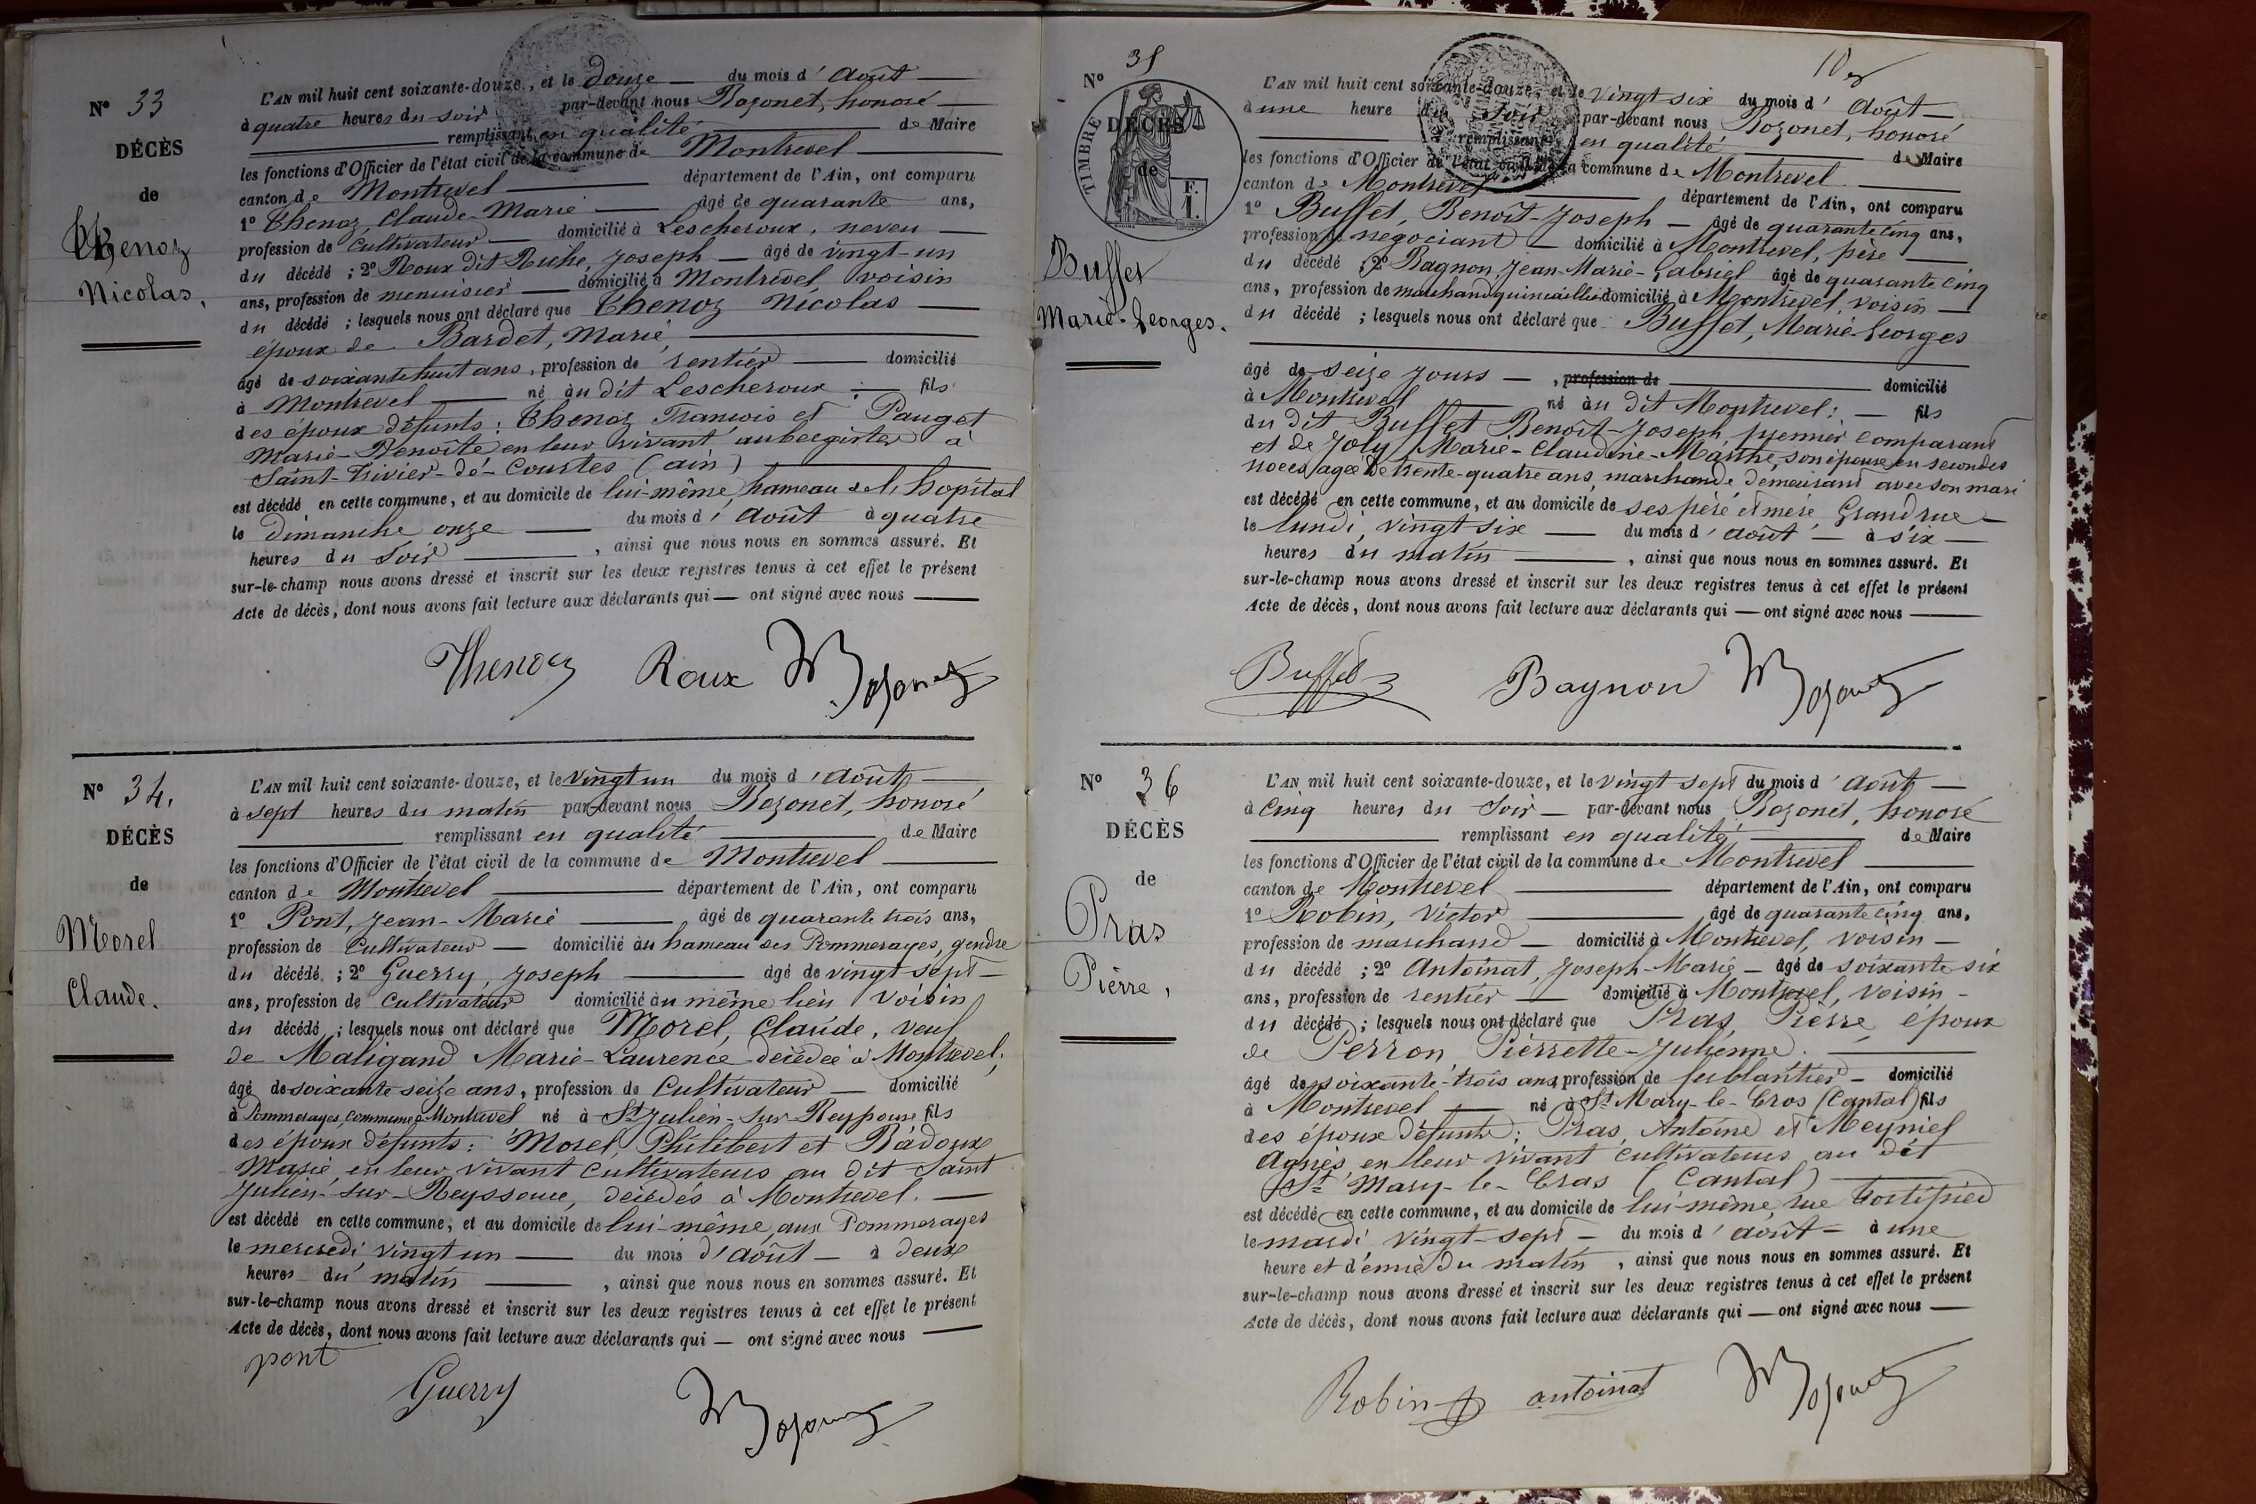 N° 33
DÉCÈS
de
Thenoz
Nicolas.
L'AN mil huit cent soixante-douze, et le douze du mois d'Août
à quatre heures du soir par-devant nous Bozonet, honoré
remplissant en qualité de Maire
les fonctions d'Officier de l'état civil de la commune de Montrevel
canton de Montrevel département de l'Ain, ont comparu
1° Thenoz, Claude-Marie âgé de quarante ans,
profession de Cultivateur domicilié à Lescheroux, neveu
du décédé ; 2° Roux dit Riche, Joseph âgé de vingt-un
ans, profession de menuisier domicilié à Montrevel, voisin
du décédé ; lesquels nous ont déclaré que Thenoz Nicolas
époux de Bardet, Marie,
âgé de soixante huit ans, profession de rentier domicilié
à Montrevel né au dit Lescheroux ; fils
des époux défunts : Thenoz François et Pauget
Marie-Benoîte en leur vivant aubergistes à
Saint-Trivier-de-Courtes (ain)
est décédé en cette commune, et au domicile de lui-même, hameau de l'hopital
le dimanche onze du mois d'Août à quatre
heures du Soir, ainsi que nous nous en sommes assuré. Et
sur-le-champ nous avons dressé et inscrit sur les deux registres tenus à cet effet le présent
Acte de décès, dont nous avons fait lecture aux déclarants qui — ont signé avec nous
Thenoz Roux Bozonet
N° 34.
DÉCÈS
de
Morel
Claude.
L'AN mil huit cent soixante-douze, et le vingt un du mois d'Août
à sept heures du matin par-devant nous Bozonet, honoré
remplissant en qualité de Maire
les fonctions d'Officier de l'état civil de la commune de Montrevel
canton de Montrevel département de l'Ain, ont comparu
1° Pont, Jean-Marie âgé de quarante trois ans,
profession de Cultivateur domicilié au hameau des Pommerayes, gendre
du décédé ; 2° Guerry, Joseph âgé de vingt sept
ans, profession de Cultivateur domicilié au même lieu voisin
du décédé ; lesquels nous ont déclaré que Morel, Claude, veuf
de Maligand Marie-Laurence décédée à Montrevel,
âgé de soixante seize ans, profession de Cultivateur domicilié
à Pommerayes, commune de Montrevel né à St Julien-sur-Reyssouse fils
des époux défunts : Morel, Philibert et Radoux
Marie, en leur vivant cultivateurs au dit Saint
Julien-sur-Reyssouse, décédés à Montrevel.
est décédé en cette commune, et au domicile de lui-même, aux Pommerayes
le mercredi vingt un du mois d'août à deux
heures du matin, ainsi que nous nous en sommes assuré. Et
sur-le-champ nous avons dressé et inscrit sur les deux registres tenus à cet effet le présent
Acte de décès, dont nous avons fait lecture aux déclarants qui — ont signé avec nous
pont
Guerry Bozonet
10
N° 35
TIMBRE
F.
1.
DÉCÈS
de
Buffet
Marie-Georges.
L'AN mil huit cent soixante-douze, et le vingt six du mois d'Août
à une heure du Soir par-devant nous Bozonet, honoré
remplissant en qualité de Maire
les fonctions d'Officier de l'état civil de la commune de Montrevel
canton de Montrevel département de l'Ain, ont comparu
1° Buffet, Benoît-Joseph âgé de quarante cinq ans,
profession de négociant domicilié à Montrevel, père
du décédé ; 2° Bagnon, Jean-Marie-Gabriel âgé de quarante cinq
ans, profession de marchand quincaillier domicilié à Montrevel, voisin
du décédé ; lesquels nous ont déclaré que Buffet, Marie-Georges
âgé de seize jours, profession de domicilié
à Montrevel né au dit Montrevel ; fils
du dit Buffet Benoît-Joseph, premier comparant
et de Joly Marie-Claudine-Marthe, son épouse en secondes
noces agée de trente-quatre ans, marchande demeurant avec son mari
est décédé en cette commune, et au domicile de ses père et mère Grand rue
le lundi, vingt six du mois d'août à six
heures du matin, ainsi que nous nous en sommes assuré. Et
sur-le-champ nous avons dressé et inscrit sur les deux registres tenus à cet effet le présent
Acte de décès, dont nous avons fait lecture aux déclarants qui — ont signé avec nous
Buffet Bagnon Bozonet
N° 36
DÉCÈS
de
Pras
Pierre,
L'AN mil huit cent soixante-douze, et le vingt sept du mois d'Août
à Cinq heures du Soir par-devant nous Bozonet, honoré
remplissant en qualité de Maire
les fonctions d'Officier de l'état civil de la commune de Montrevel
canton de Montrevel département de l'Ain, ont comparu
1° Robin, Victor âgé de quarante cinq ans,
profession de marchand domicilié à Montrevel, voisin
du décédé ; 2° Antoinat, Joseph-Marie âgé de soixante six
ans, profession de rentier domicilié à Montrevel, voisin
du décédé ; lesquels nous ont déclaré que Pras, Pierre, époux
de Perron Pierrette-Julienne.
âgé de soixante-trois ans, profession de ferblantier domicilié
à Montrevel né à St Mary-le-Cros (Cantal) fils
des époux défunts ; Pras, Antoine et Meyniel
Agnès, en leur vivant cultivateurs au dit
St Mary-le-Cros (Cantal)
est décédé en cette commune, et au domicile de lui-même, rue
le mardi vingt-sept du mois d'août à une
heure et demie du matin, ainsi que nous nous en sommes assuré. Et
sur-le-champ nous avons dressé et inscrit sur les deux registres tenus à cet effet le présent
Acte de décès, dont nous avons fait lecture aux déclarants qui — ont signé avec nous
Robin antoinat Bozonet